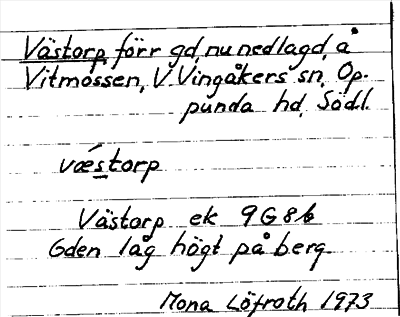 Västorp, förr gd, nu nedlagd, å
Vitmossen, V. Vingåkers sn, Op-
punda hd, Södl.
vǽstorp
Västorp ek 9G8b
Gden låg högt på berg.
Mona Löfroth 1973